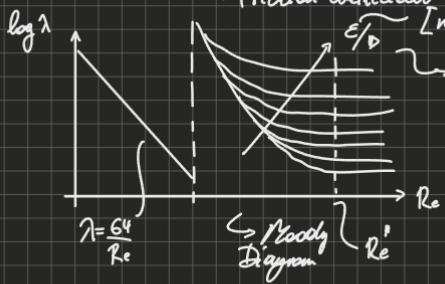 log λ
ε/D
Re
λ = 64/Re
↳ Moody
Diagram
Re'